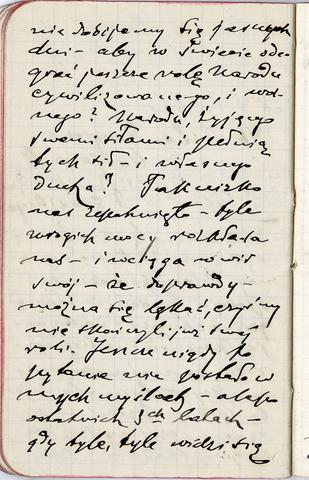 nie dobijemy się jasnych
dni – aby w świecie ode-
grać jeszcze rolę narodu
cywilizowanego, i wol-
nego? Narodu, żyjącego
swemi siłami i pełnią
tych sił – i własnego
Ducha? Tak nizko
nas zepchnięto – tyle
wrogich mocy rozkłada
nas – i wciąga w wir
swój – że doprawdy –
można się lękać, czyśmy
nie skończyli już swej
roli. Jeszcze nigdy to
pytanie nie postało w
mych myślach – ale po
ostatnich 3ch latach –
gdy tyle, tyle widzi się